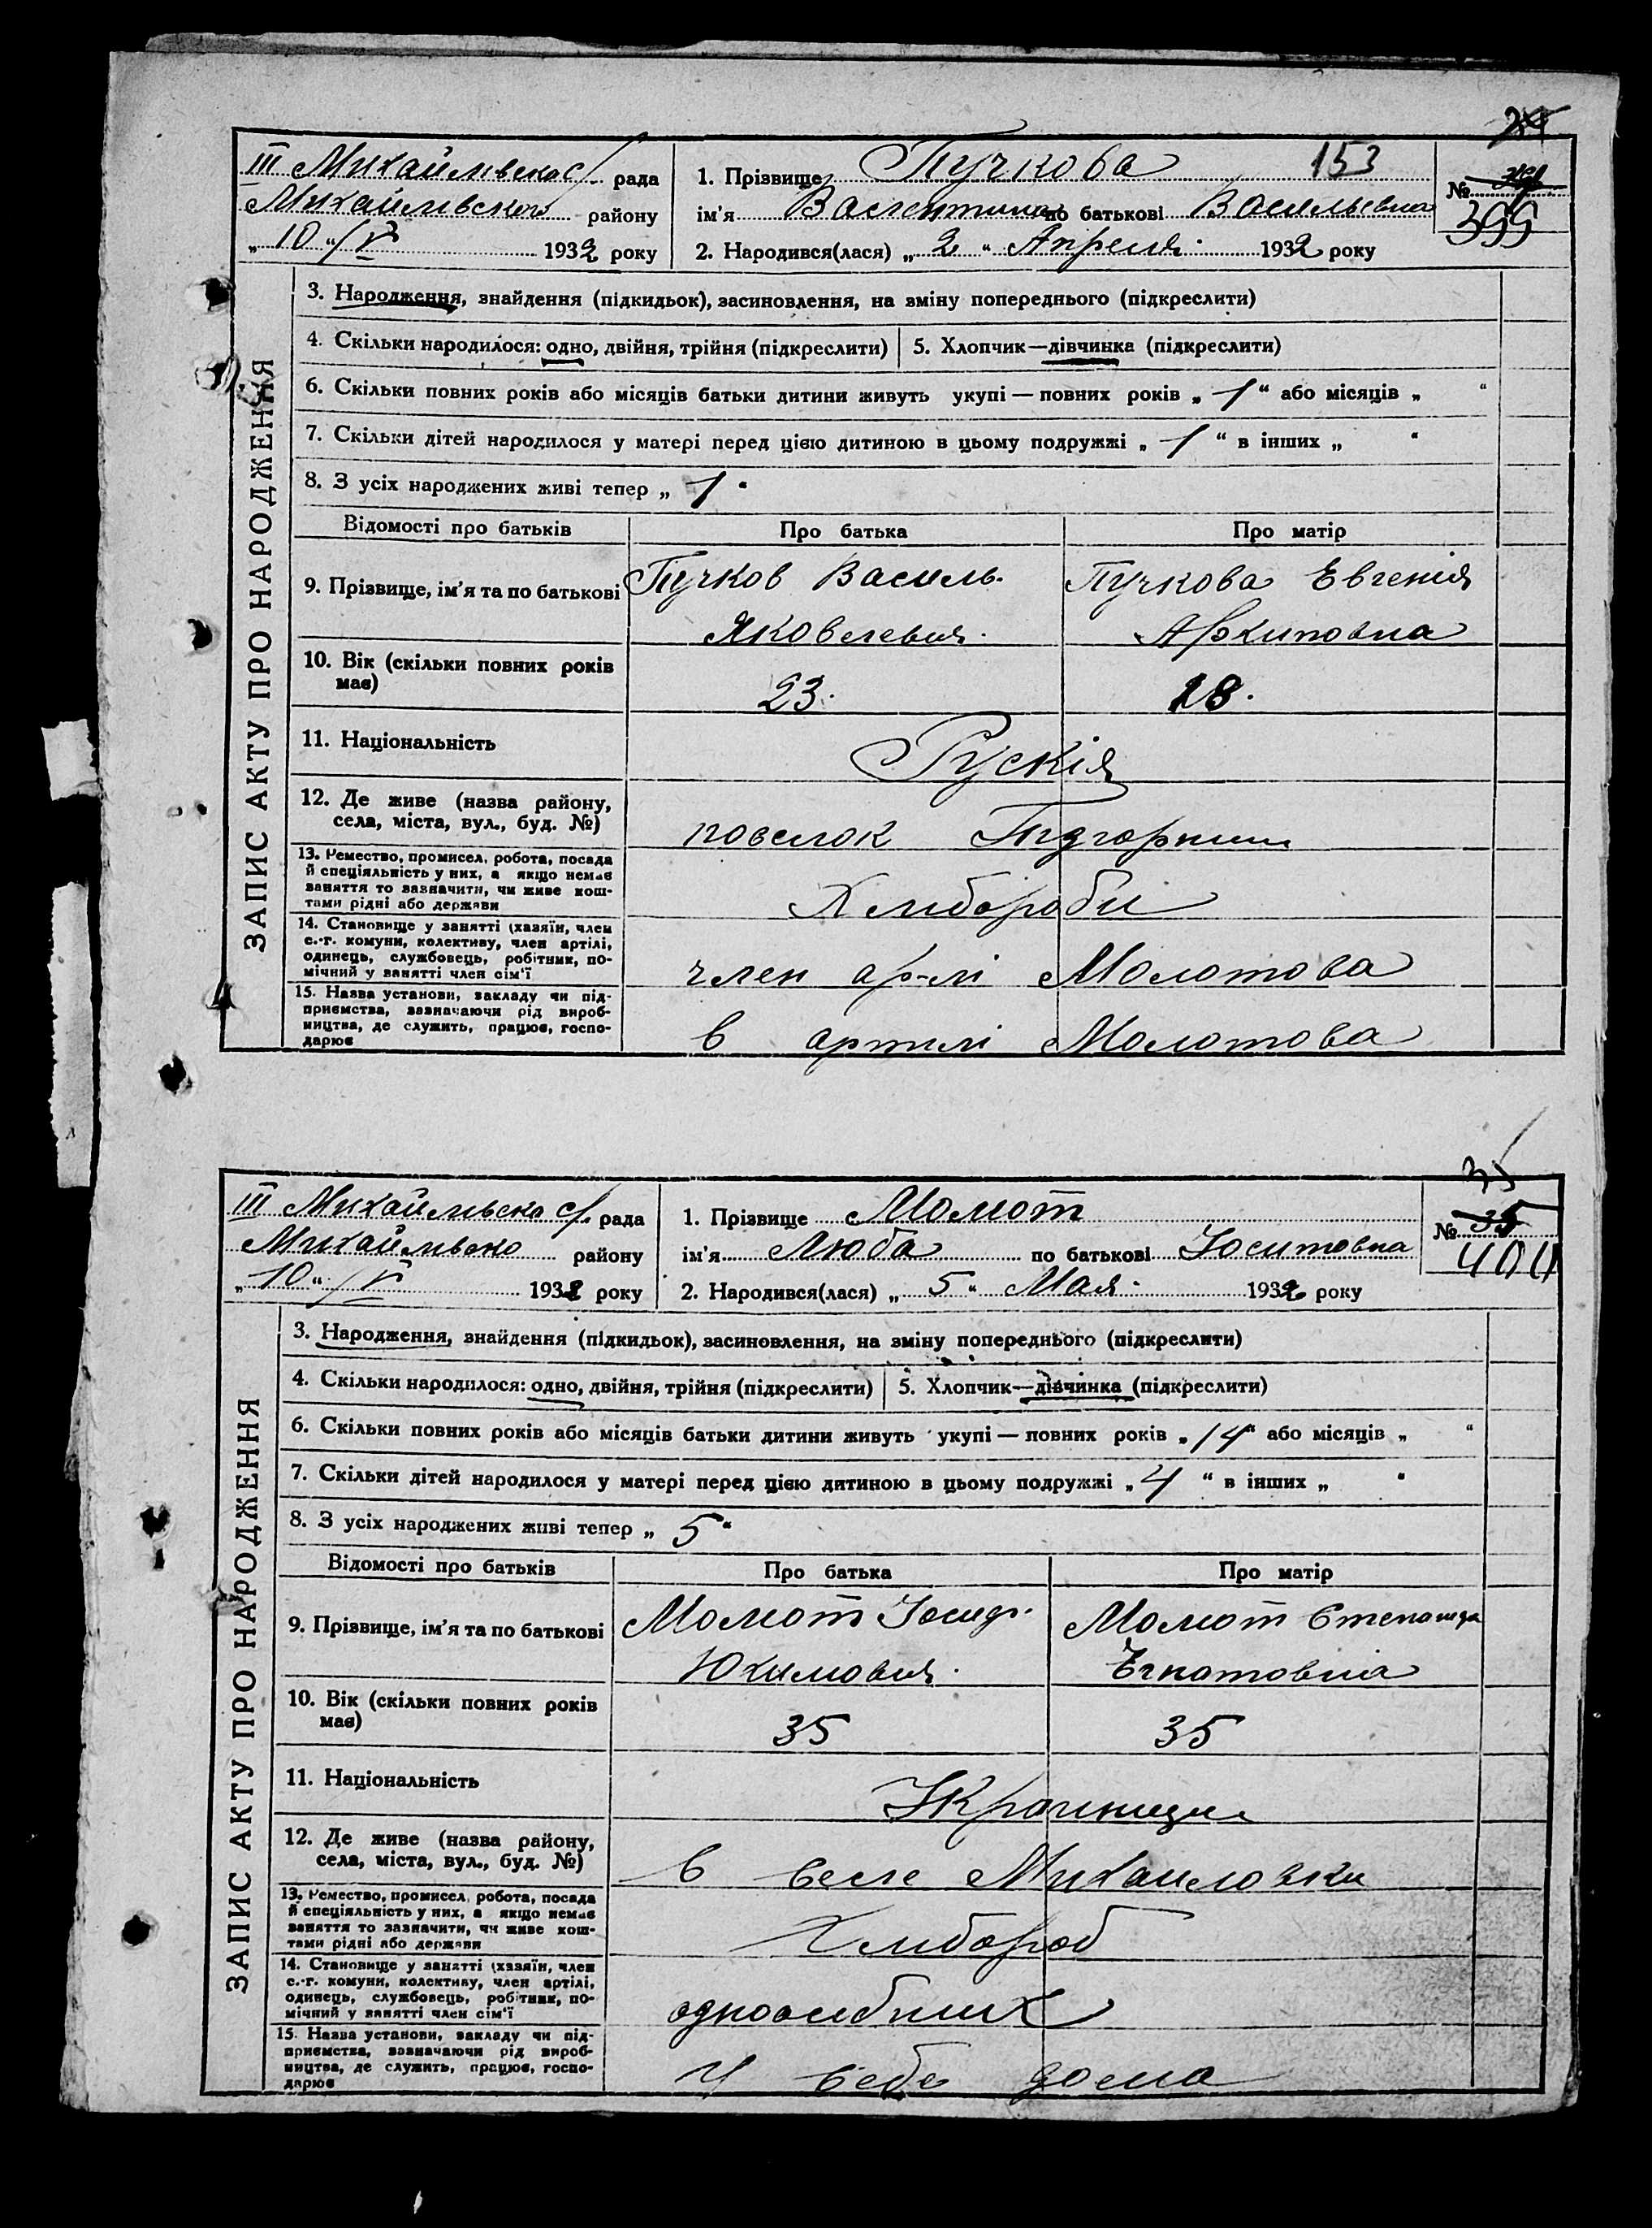 ЗАПИС АКТУ ПРО НАРОДЖЕННЯ
ІІІ Михайлівска с/ рада
Михайлівского району
„10“ V 1932 року
1. Прізвище Пучкова 153
ім'я Валентина по батькові Васильевна
2. Народився(лася) „2“ Апреля 1932 року
№ 399
3. Народження, знайдення (підкидьок), засиновлення, на зміну попереднього (підкреслити)
4. Скільки народилося: одно, двійня, трійня (підкреслити) 5. Хлопчик—дівчинка (підкреслити)
6. Скільки повних років або місяців батьки дитини живуть укупі — повних років „1“ або місяців „ “
7. Скільки дітей народилося у матері перед цією дитиною в цьому подружжі „1“ в інших „ “
8. З усіх народжених живі тепер „1“
Відомості про батьків Про батька Про матір
9. Прізвище, ім'я та по батькові Пучков Василь Пучкова Евгенія
Яковлевич Архиповна
10. Вік (скільки повних років
має) 23. 18.
11. Національність Рускія
12. Де живе (назва району,
села, міста, вул., буд. №) поселок
13. Ремество, промисел, робота, посада
й спеціяльність у них, а якщо немає
заняття то зазначити, чи живе кош-
тами рідні або держави Хлібороби
14. Становище у занятті (хазяїн, член
с.-г. комуни, колективу, член артілі,
одинець, службовець, робітник, по-
мічний у занятті член сім'ї член ар-лі Молотова
15. Назва установи, закладу чи під-
приємства, зазначаючи рід вироб-
ництва, де служить, працює, госпо-
дарює в артилі Молотова
ЗАПИС АКТУ ПРО НАРОДЖЕННЯ
35
ІІІ Михайлівска с/. рада
Михайлівско району
„10“ V 1932 року
1. Прізвище Момот
ім'я Люба по батькові
2. Народився(лася) „5“ Мая 1932 року
№ 35
400
3. Народження, знайдення (підкидьок), засиновлення, на зміну попереднього (підкреслити)
4. Скільки народилося: одно, двійня, трійня (підкреслити) 5. Хлопчик—дівчинка (підкреслити)
6. Скільки повних років або місяців батьки дитини живуть укупі — повних років „14“ або місяців „ “
7. Скільки дітей народилося у матері перед цією дитиною в цьому подружжі „4“ в інших „ “
8. З усіх народжених живі тепер „5“
Відомості про батьків Про батька Про матір
9. Прізвище, ім'я та по батькові Момот Момот
Юхимович
10. Вік (скільки повних років
має) 35 35
11. Національність Украинци
12. Де живе (назва району,
села, міста, вул., буд. №) в селе Михаиловки
13. Ремество, промисел, робота, посада
й спеціяльність у них, а якщо немає
заняття то зазначити, чи живе кош-
тами рідні або держави Хлібороб
14. Становище у занятті (хазяїн, член
с.-г. комуни, колективу, член артілі,
одинець, службовець, робітник, по-
мічний у занятті член сім'ї
15. Назва установи, закладу чи під-
приємства, зазначаючи рід вироб-
ництва, де служить, працює, госпо-
дарює У себе дома